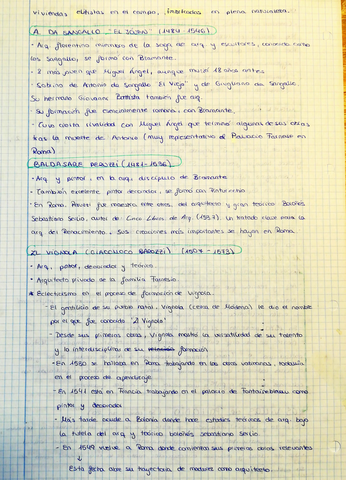 viviendas elitistas en el campo, insertadas en plena naturaleza.
A. DA SANGALLO "EL JOVEN" (1484-1546)
- Arq. florentino miembro de la saga de arq. y escultores, conocida como
los Sangallo, se formó con Bramante.
- 8 más joven que Miguel Ángel, aunque murió 18 años antes
- Sobrino de Antonio da Sangallo "El Viejo" y de Giugliano da Sangallo.
Su hermano Giovanni Battista también fue arq.
- Su formación fue esencialmente romana, con Bramante.
- Cuya cierta rivalidad con Miguel Ángel que terminó algunas de sus obras
tras la muerte de Antonio (muy representativo el Palacio Farnese en
Roma)
BALDASARE PERUZZI (1481-1536)
- Arq. y pintor, en la arq. discípulo de Bramante
- También excelente pintor decorador, se formó con Pinturicchio
- En Roma, Peruzzi fue maestro, entre otros, del arquitecto y gran teórico Boloñés
Sebastiano Serlio, autor de: Cinco Libros de Arq. (1537). Un tratado clave para la
arq. del Renacimiento. Sus creaciones más importantes se hayan en Roma.
EL VIGNOLA (GIACCOLOCO BAROZZI) (1507-1573)
- Arq, pintor, decorador y teórico
- Arquitecto privado de la familia Farnesio.
* Eclecticismo en el proceso de formación de Vignola.
- El gentilicio de su pueblo natal, Vignola (cerca de Módena) le dio el nombre
por el que fue conocido "Il Vignola"
- Desde sus primeras obras, Vignola mostró la versatilidad de su talento
y lo interdisciplinar de su formación
- En 1530 se hallaba en Roma trabajando en las obras vaticanas, todavía
en el proceso de aprendizaje
- En 1541 está en Francia trabajando en el palacio de Fontainebleau como
pintor y decorador
- Más tarde acude a Bolonia donde hace estudios teóricos de arq. bajo
la tutela del arq. y teórico boloñés Sebastiano Serlio.
- En 1549 vuelve a Roma donde comienzan sus primeras obras relevantes
↓
Esta fecha abre su trayectoria de madurez como arquitecto.